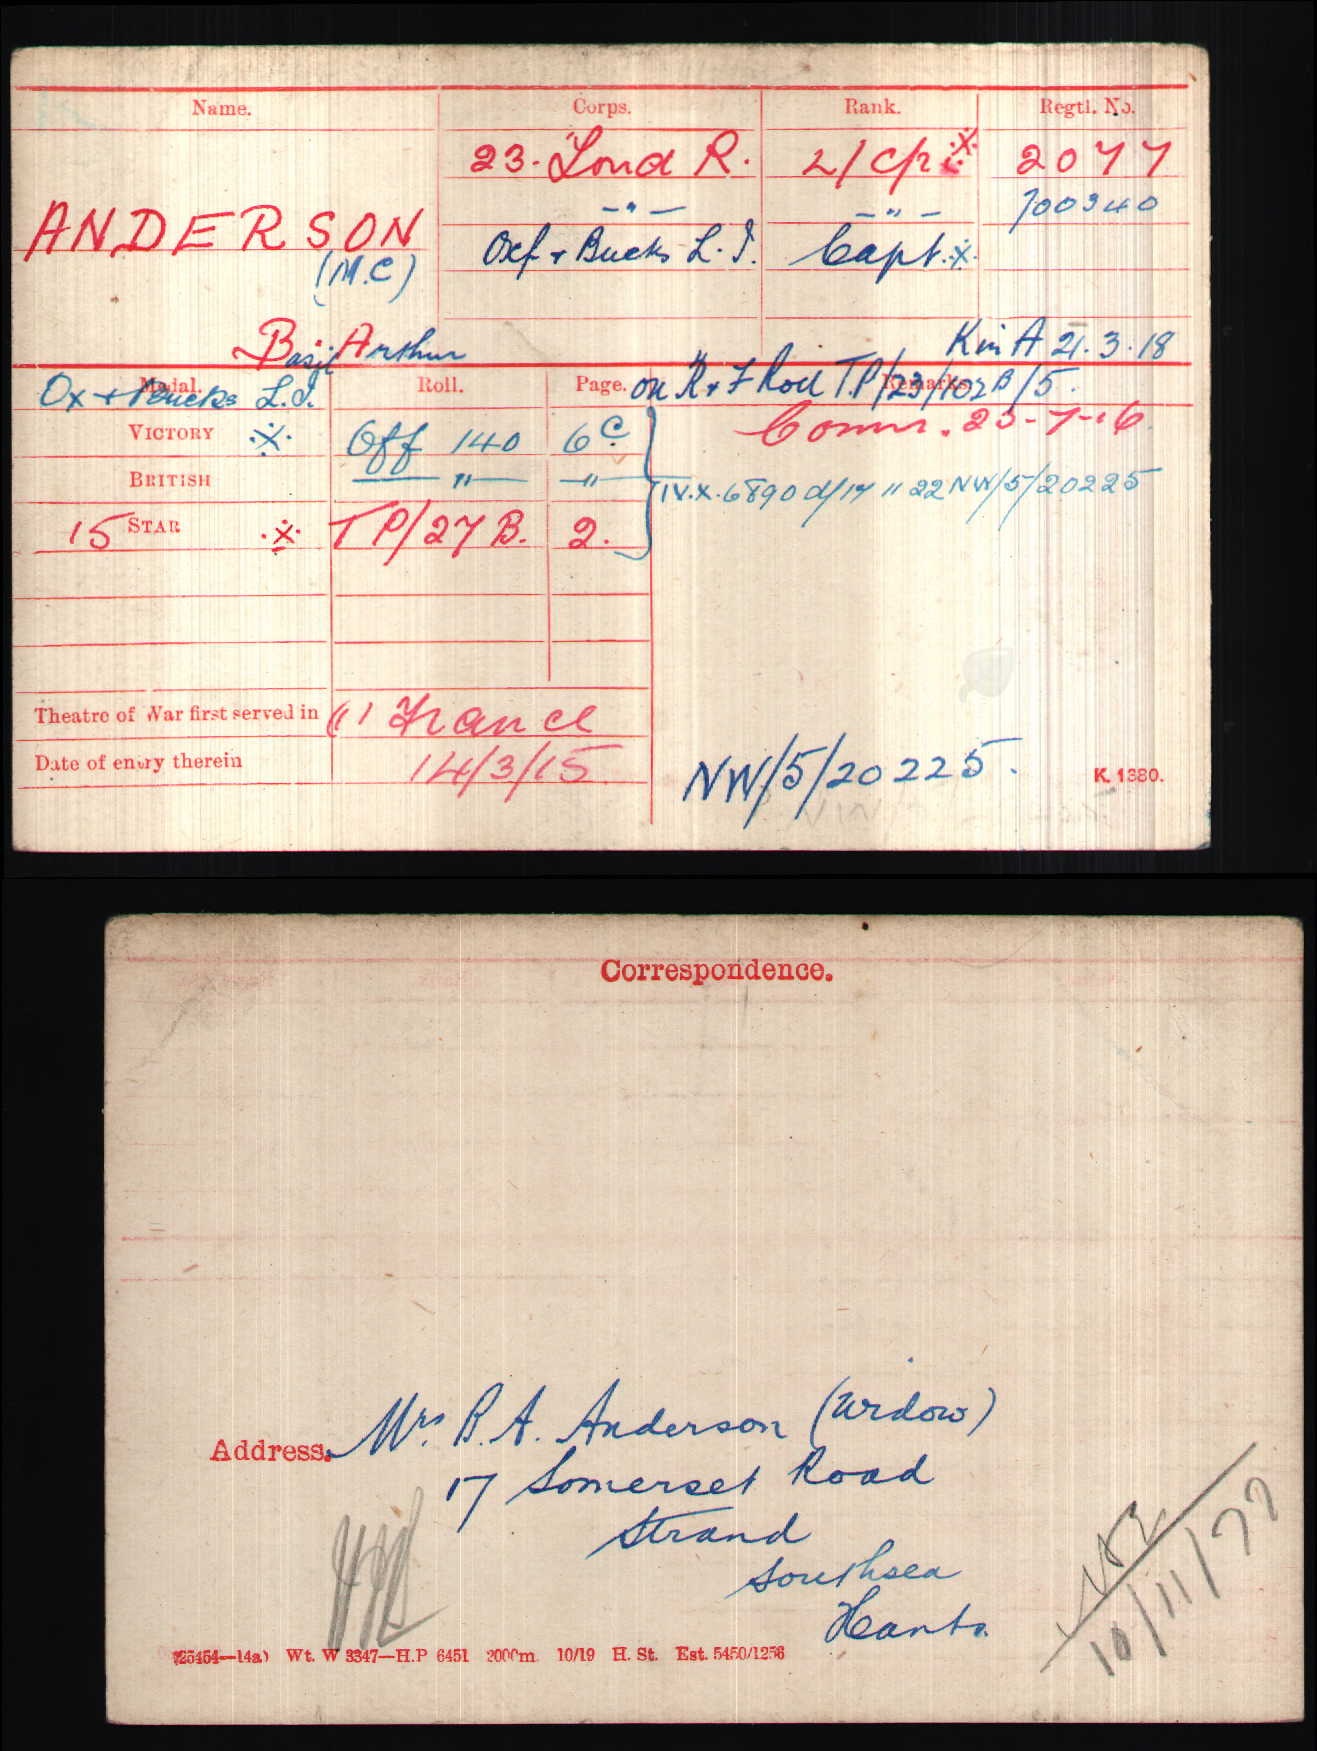 Name. Corps. Rank. Regtl. No.
23. Lond R. L/Cpl ※ 2077
—"— —"— 700340
ANDERSON
Oxf + Bucks L.I. Capt. ※
(M.C)
Basil Arthur
K in A 21.3.18
Medal. Roll. Page. Remarks.
Ox + Bucks L.I.
on R + F Roll T.P/23/102B/5.
VICTORY ※ Off 140 6c
Comm. 25-7-16
BRITISH —"— —"—
IV.X.6890 d/17 " 22 NW/5/20225
15 STAR ※ TP/27 B. 2.
Theatre of War first served in (1) France
Date of entry therein 14/3/15
NW/5/20225.
K. 1380.
Correspondence.
Address. Mrs B. A. Anderson (Widow)
17 Somerset Road
Strand
Southsea
Hants.
10/11/22
(25454—14a) Wt. W 3347—H.P 6451 2000m 10/19 H. St. Est. 5450/1256